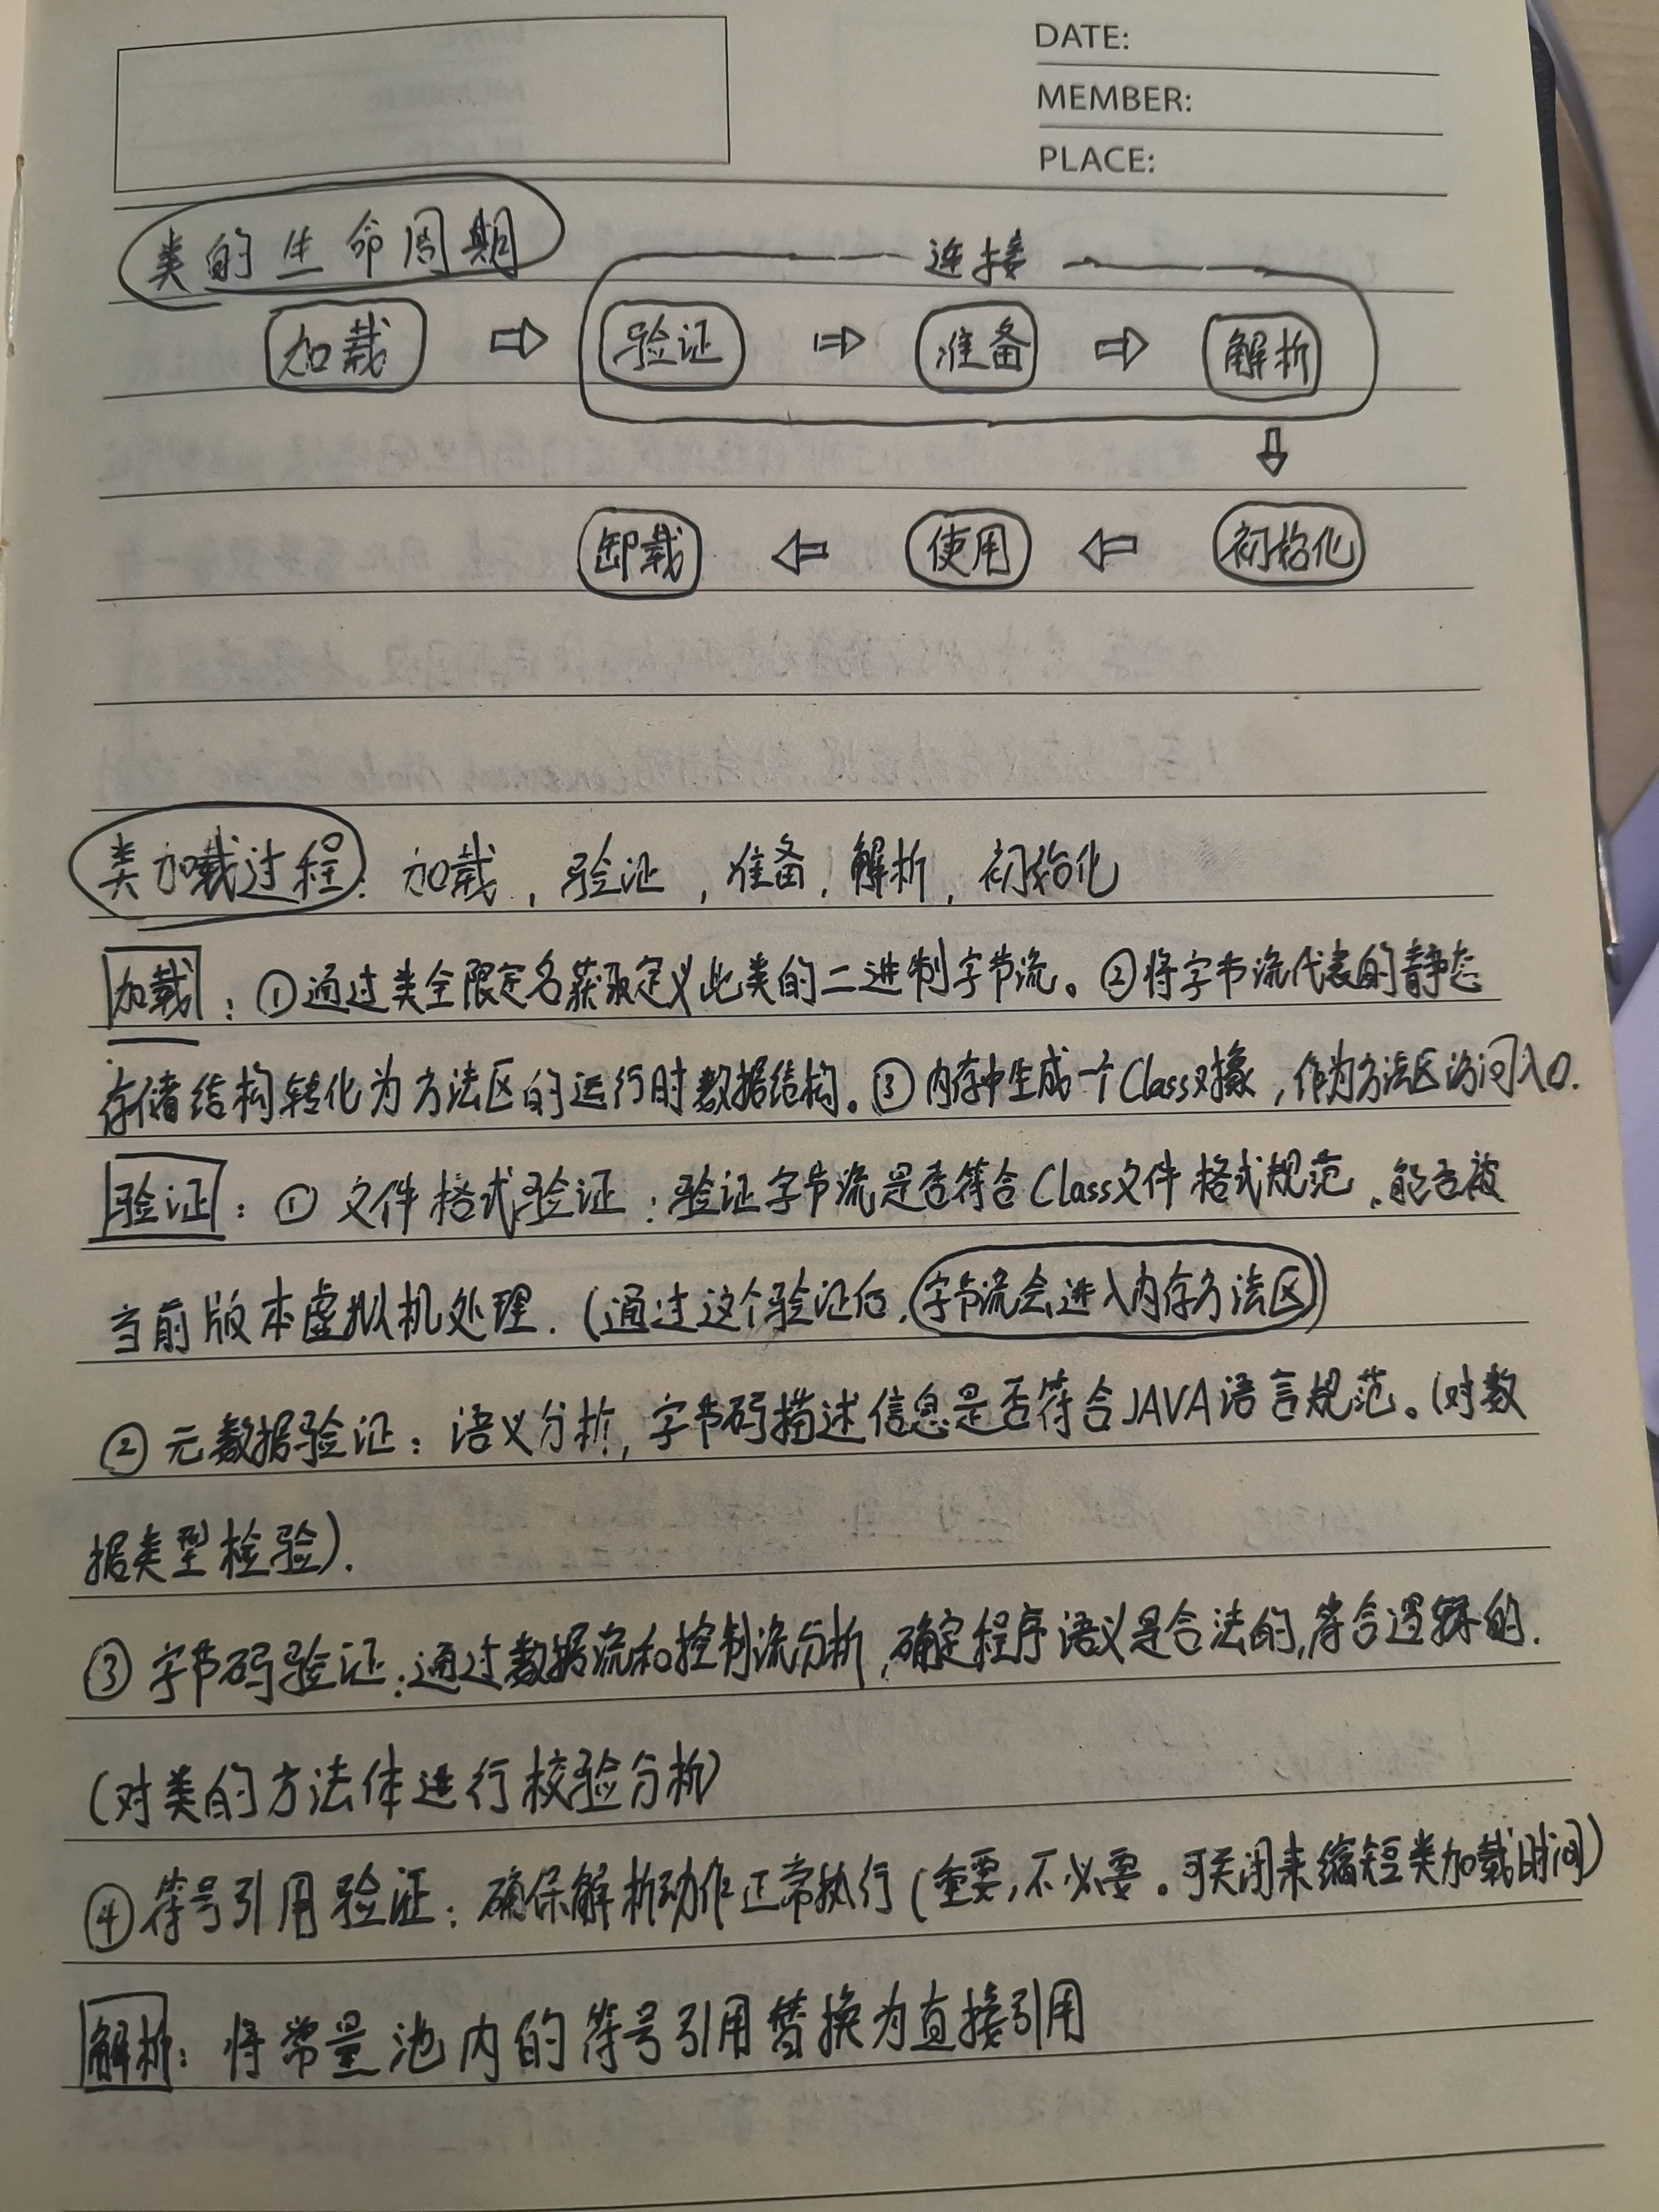 DATE:
MEMBER:
PLACE:
类的生命周期
连接
加载 ⇨ 验证 ⇨ 准备 ⇨ 解析
⇩
卸载 ⇦ 使用 ⇦ 初始化
类加载过程: 加载, 验证, 准备, 解析, 初始化
加载: ①通过类全限定名获取定义此类的二进制字节流。②将字节流代表的静态
存储结构转化为方法区的运行时数据结构。③内存中生成一个Class对象,作为方法区访问入口.
验证: ① 文件格式验证: 验证字节流是否符合Class文件格式规范,能否被
当前版本虚拟机处理.(通过这个验证后,字节流会进入内存方法区)
② 元数据验证: 语义分析,字节码描述信息是否符合JAVA语言规范。(对数
据类型检验).
③ 字节码验证:通过数据流和控制流分析,确定程序语义是合法的,符合逻辑的.
(对类的方法体进行校验分析)
④符号引用验证: 确保解析动作正常执行(重要,不必要。可关闭来缩短类加载时间)
解析: 将常量池内的符号引用替换为直接引用